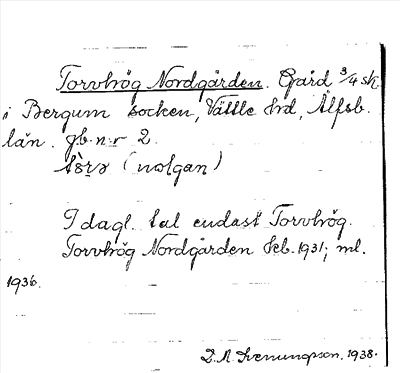 Torvhög Nordgården. Gård 3/4 sk.
i Bergum socken, Vättle hrd, Älfsb.
län. Jb. n:r 2.
(nolgan)
I dagl. tal endast Torvhög.
Torvhög Nordgården Feb. 1931; ml.
1936.
D. A. Svenungsson. 1938.